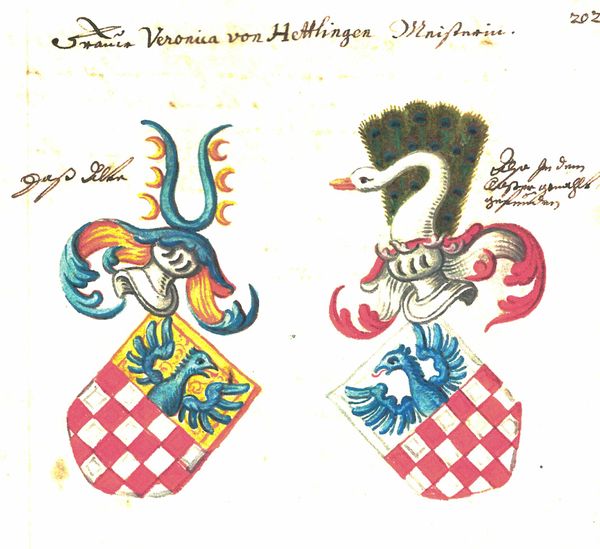 Frauw Veronica von Hettlingen Meisterin.
202
Daß Alte
Also in dem
Closter gemahlt
gefunden